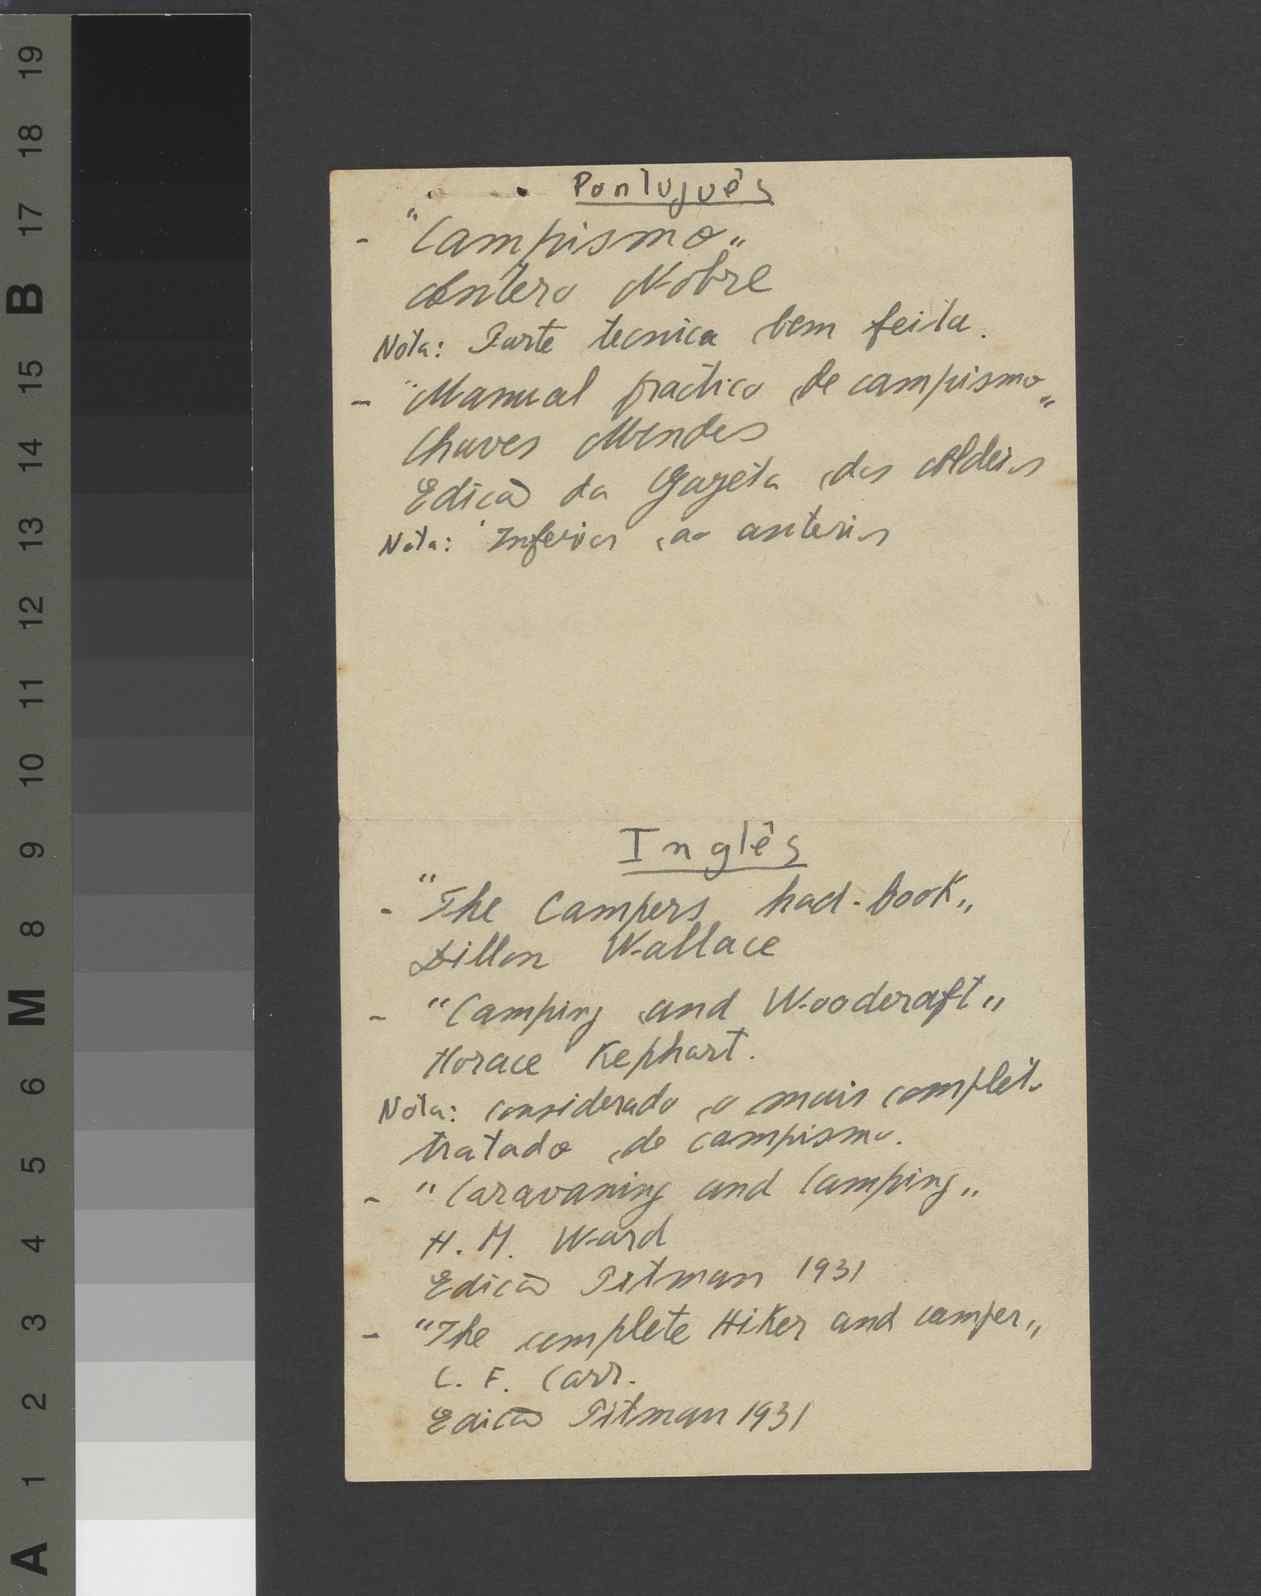 Português
- "Campismo"
Antero Nobre
Nota: Parte tecnica bem feita.
- "Manual practico de campismo"
Chaves Mendes
Edicão da Gazeta das Aldeias
Nota: Inferior ao anterior
Inglês
- "The Campers had-book"
Dillon Wallace
- "Camping and Woodcraft"
Horace Kephart.
Nota: considerado o mais completo
tratado de campismo.
- "Caravaning and Camping"
H. M. Ward
Edicão Pitman 1931
- "The complete Hiker and camper"
C. F. Carr.
Edicão Pitman 1931
19
18
17
B
15
14
13
12
11
10
9
8
M
6
5
4
3
2
1
A